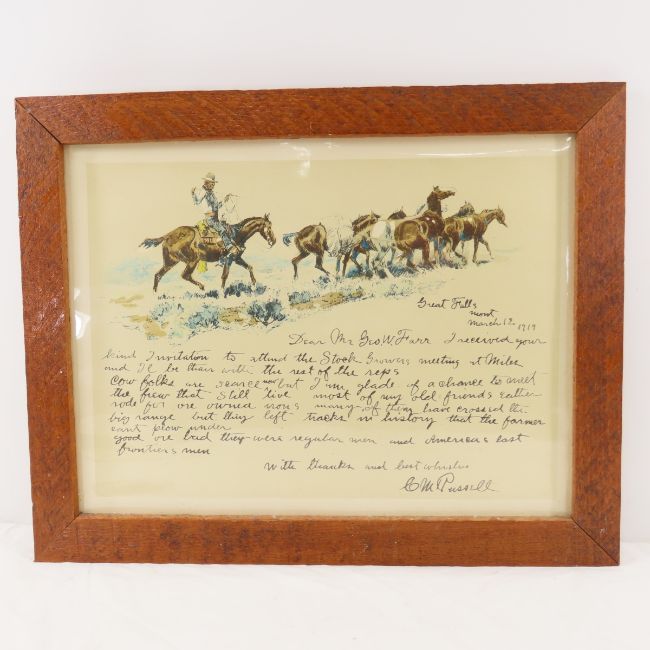 Great Falls
Mont
March 12. 1919
Dear Mr Geo, W Farr I received your
kind Invitation to attend the Stock Growers meeting at Miles
and I'll be thair with the rest of the reps
Cow folks are scarce now but I'm glade of a chance to meet
the fiew that still live most of my old friends eather
rode for ore owned irons many of them have crossed the
big range but they left tracks in history that the farmer
cant plow under
good ore bad they were regular men and Americas last
frontiers men
With thanks and best whishes
C M Russell